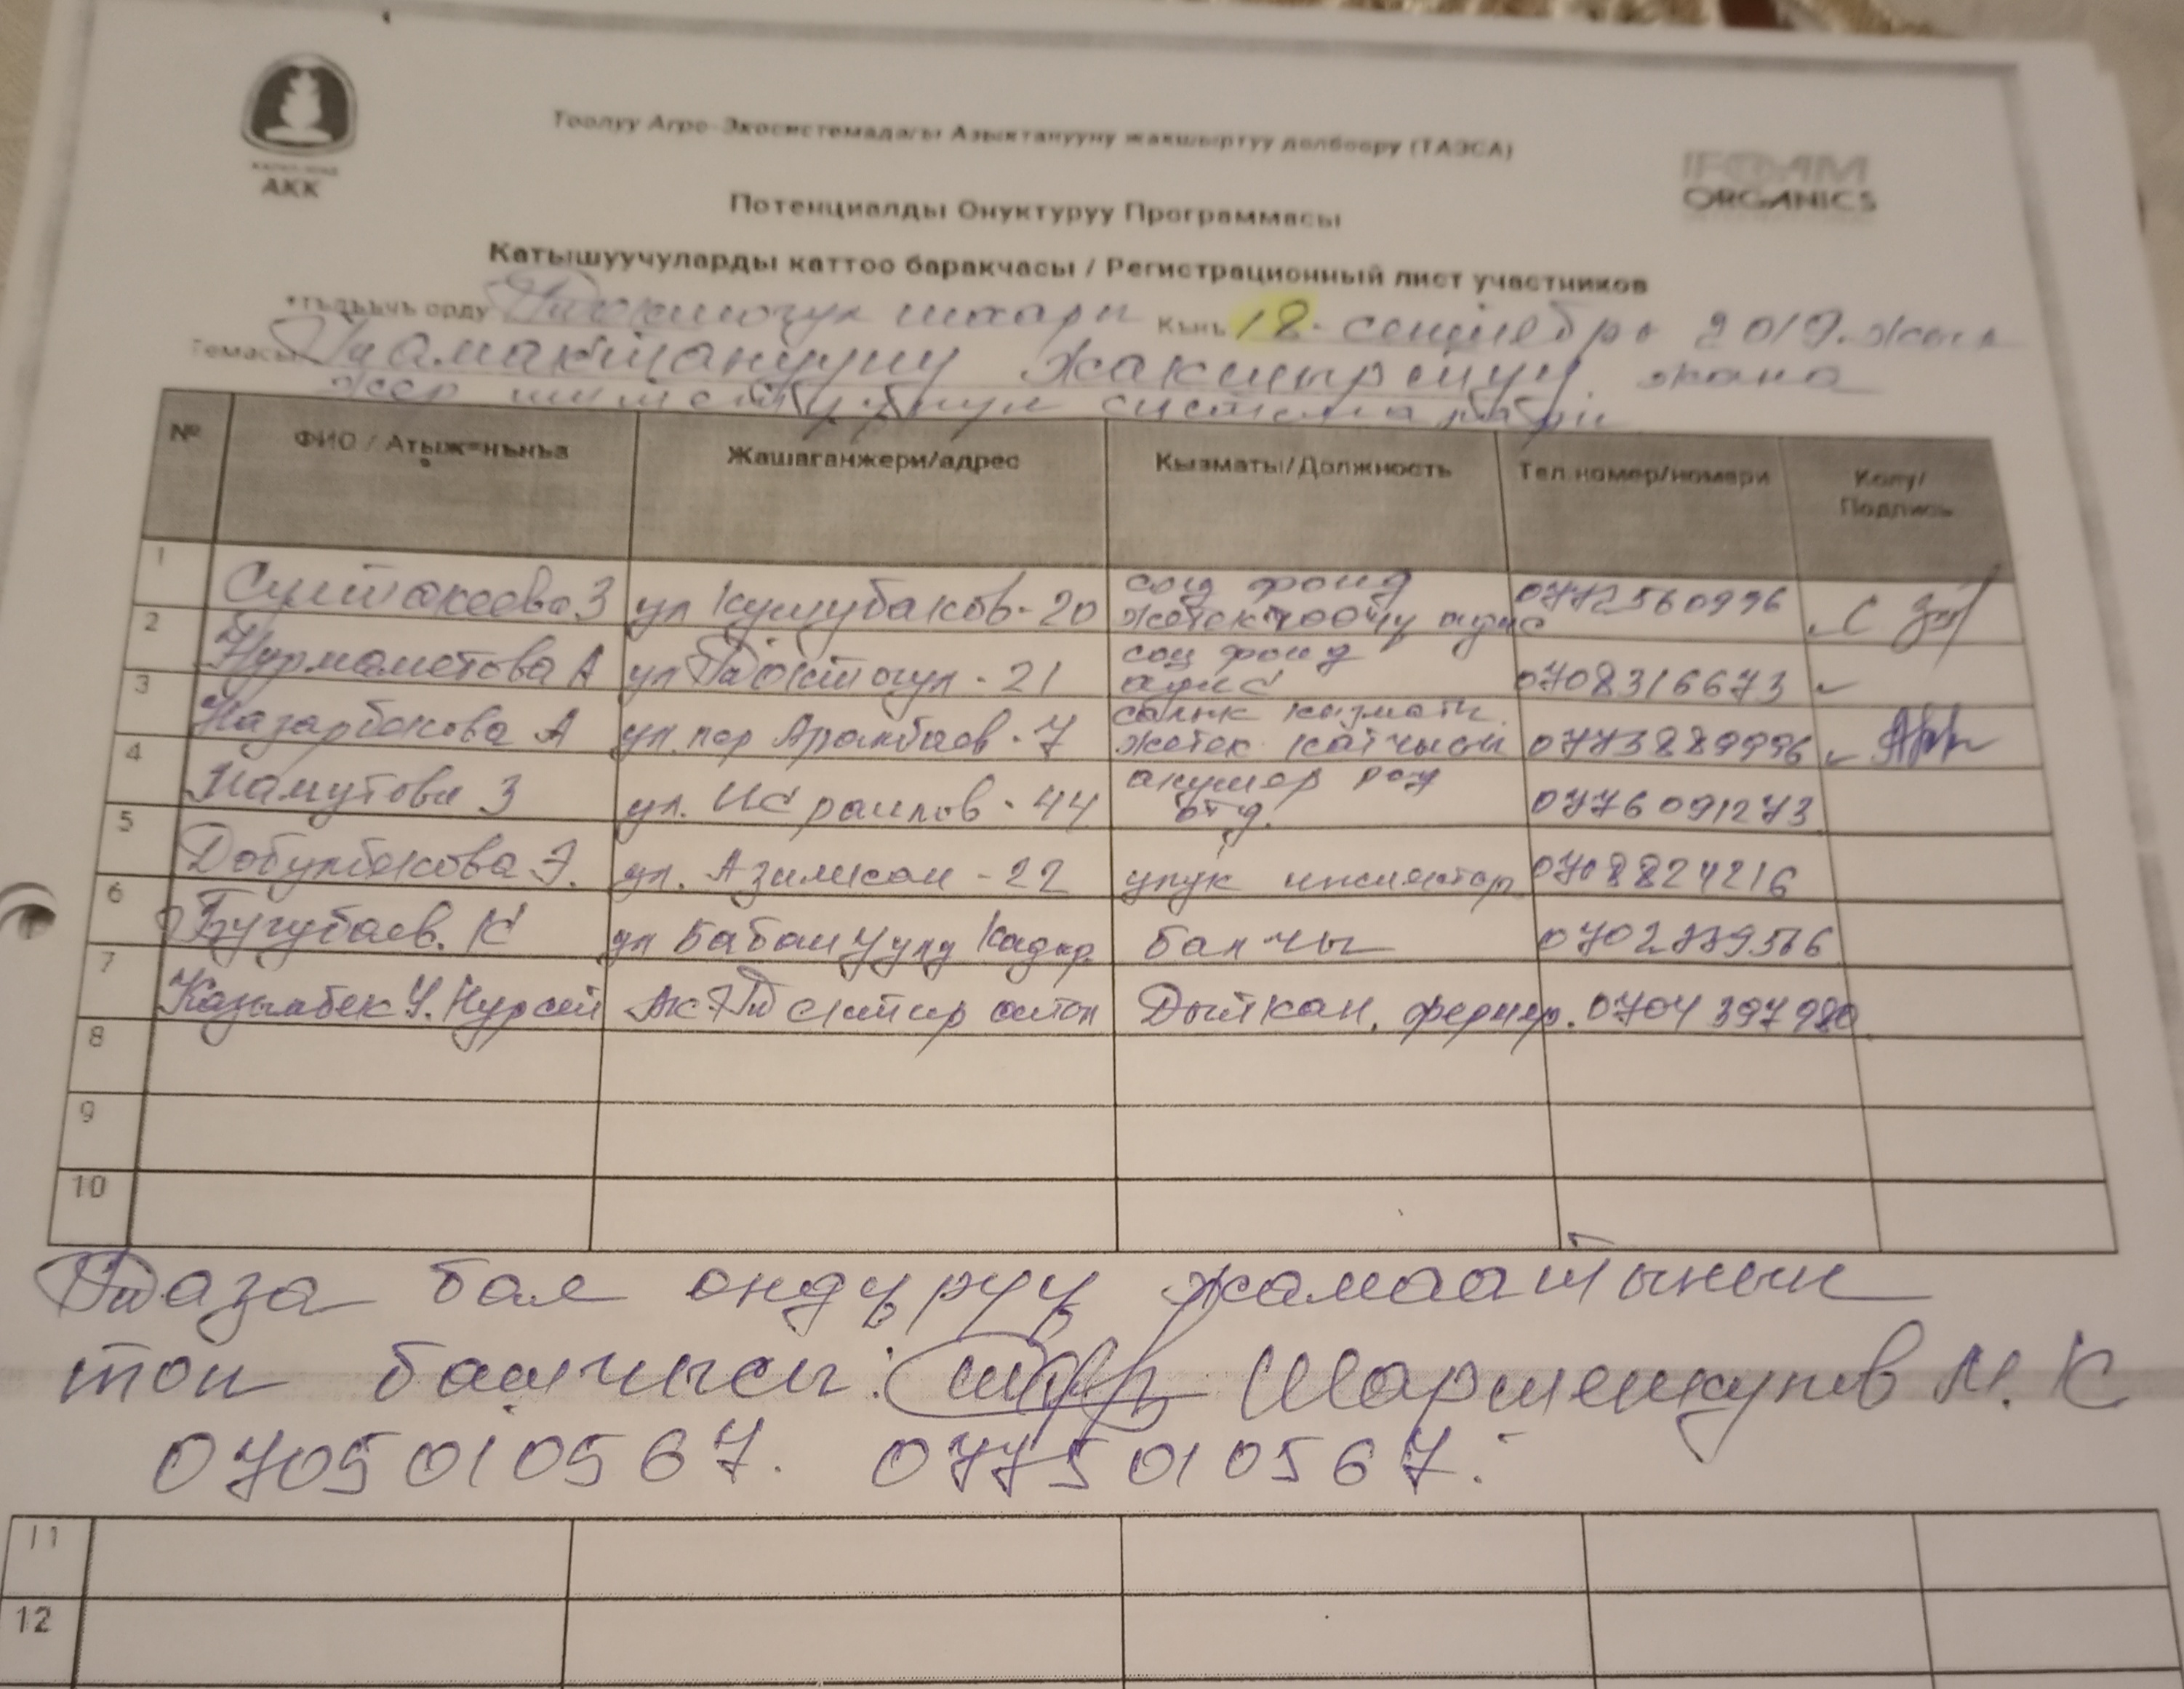 Тоолуу Агро-Экосистемадагы Азыктанууну жакшыртуу долбоору (ТАЭСА)
АКК
IFOAM
ORGANICS
Потенциалды Онуктуруу Программасы
Катышуучуларды каттоо баракчасы / Регистрационный лист участников
орду Токтогул шаары Кынь 18 - сентябрь 2019. жыл
Темасы Тамактанууну жакшыртуу жана
жер системалары
№ ФИО / Атыжънънъз Жашаганжери/адрес Кызматы/Должность Тел.номер/номери Колу/
Подпись
1 З ул Кушубаков - 20 соц фонд
жетектоочу адис 0772560996
2 Нурмаметова А ул Токтогул - 21 соц фонд
адис 0708316673
3 Назарбекова А ул. пер Арамбаев - 7 салык кызматы
жетек. катчысы 0773889996
4 Мамутова З ул. Исраилов - 44 акушер род
отд. 0776091273
5 Добулбекова Э. ул. Азимжан - 22 улук инспектор 0708824216
6 Бугубаев. К ул Бабаш Уулу Кадыр балчы
7 Казыбек У. Нурсеит Дыйкан, фермер. 0704 397980
8
9
10
Таза бал ондуруу жамаатынын
топ башчысы: Шаршенкулов М. К
0705 010567. 0775 010567.
11
12